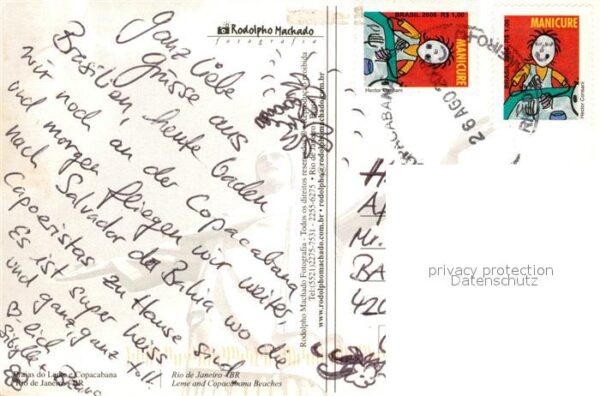 Ganz liebe
Grüsse aus
Brasilien, heute baden
wir noch an der Copacabana
und morgen fliegen wir weiter
nach Salvador da Bahia wo die
Capoeristas zu Hause sind.
Es ist super heiss
und ganz ganz toll.
Rodolpho Machado
fotografia
Praias do Leme e Copacabana
Rio de Janeiro - BR
Rio de Janeiro - BR
Leme and Copacabana Beaches
Rodolpho Machado Fotografia - Todos os direitos reservados
Tel:(5521)2275-7531 - 2255-6275 • Rio de Janeiro
www.rodolphomachado.com.br • rodolpho@rodolphomachado.com.br
BRASIL 2006 R$ 1,00
MANICURE
Hector Consani
MANICURE
Hector Consani
COPACABANA
26 AGO
Mr.
BA
420
privacy protection
Datenschutz